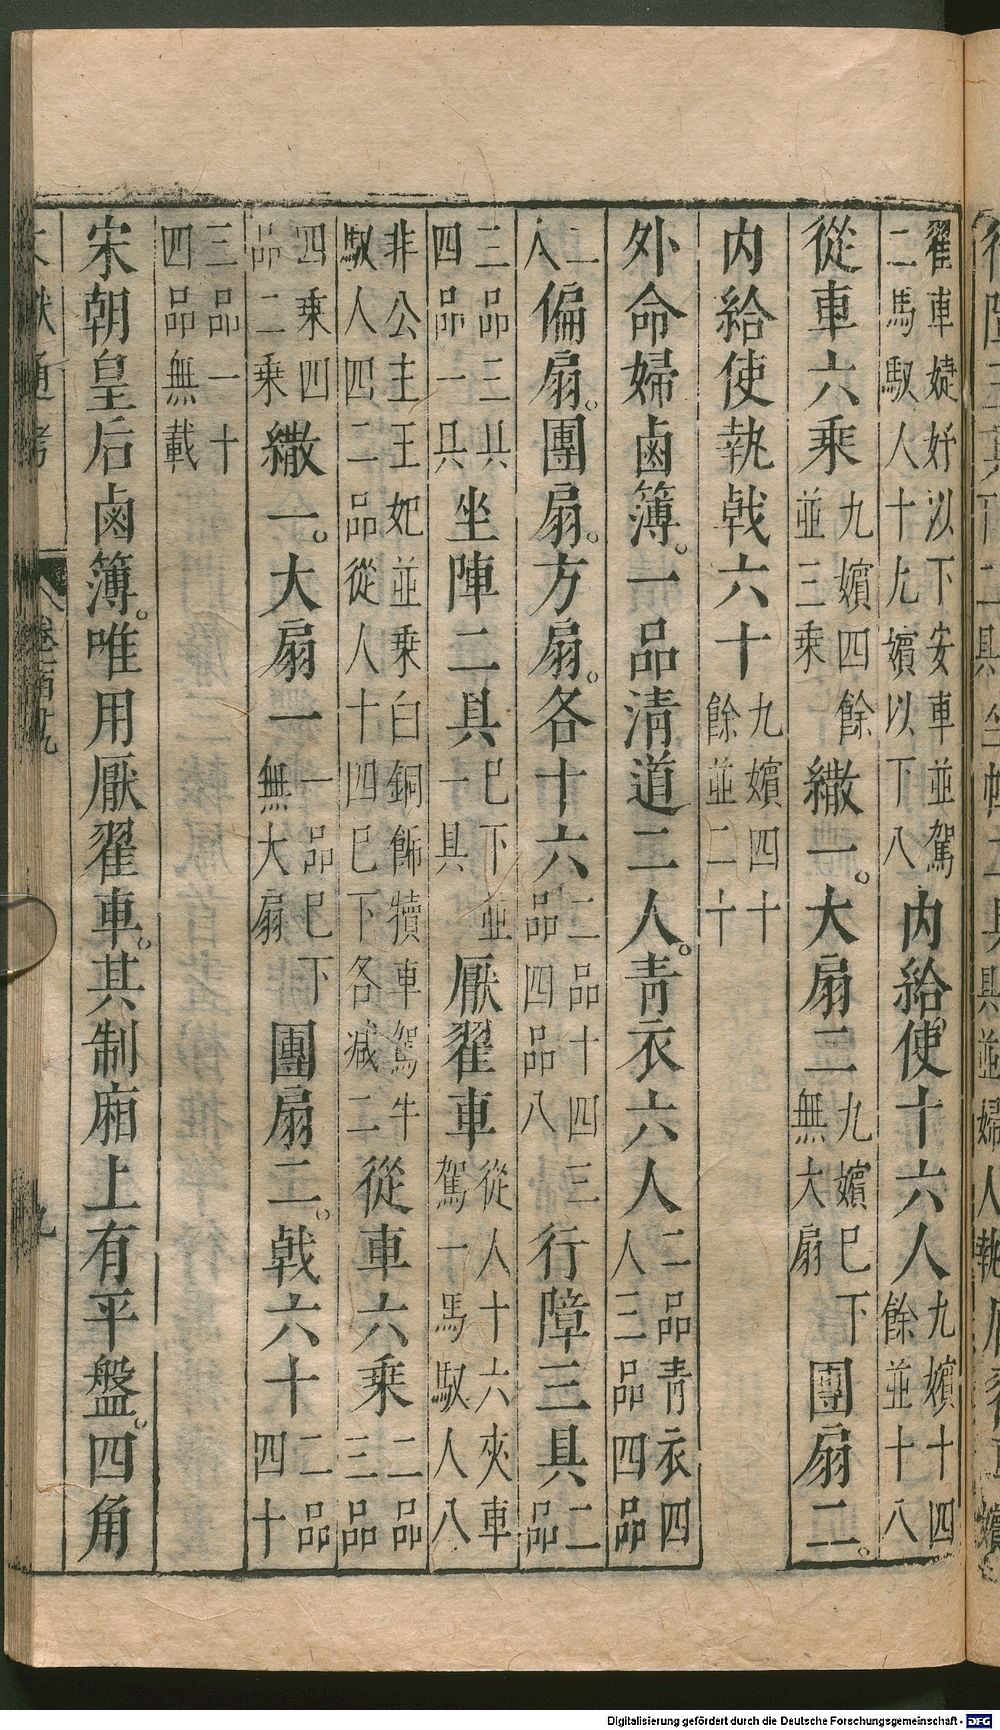 翟車婕妤以下安車並駕二馬馭人十九嬪以下八內給使十六人九嬪十四餘並十八
從車六乘九嬪四餘並三乘繖一。大扇二九嬪巳下無大扇團扇二。
內給使執戟六十九嬪四十餘並二十
外命婦鹵簿。一品清道二人。青衣六人二品青衣四人三品四品
二人偏扇。團扇。方扇。各十六二品十四三品四品八行障三具二品
三品三具四品一具坐陣二具巳下並一具厭翟車從人十六夾車駕一馬馭人八
非公主王妃並乗白銅飾犢車駕牛馭人四二品從人十四巳下各減二從車六乘二品三品
四乗四品二乗繖一。大扇一一品巳下無大扇團扇二。戟六十二品四十
三品一十四品無載
宋朝皇后鹵簿。唯用厭翟車。其制廂上有平盤。四角
Digitalisierung gefördert durch die Deutsche Forschungsgemeinschaft - DFG